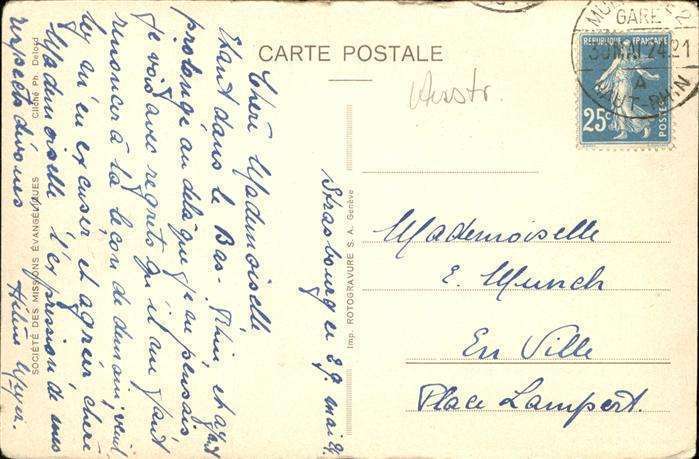 CARTE POSTALE
MU
GARE
21
30 MAI 24.21
A
HAUT-RHIN
REPUBLIQUE FRANÇAISE
25c
POSTES
Strasbourg ce 29. mai 24
Chère Mademoiselle
Etant dans le Bas-Rhin et ayant
prolongé au delà que je ne pensais
je vois avec regrets qu'il me faut
renoncer à la leçon de demain; veuil-
lez m'en excuser et agréer chère
Mademoiselle l'expression de mes
respects dévoués
Hélène Meyer.
Mademoiselle
E. Munch
En Ville
Place Lampert.
Imp. ROTOGRAVURE S. A. Genève
SOCIÉTÉ DES MISSIONS ÉVANGÉLIQUES Cliché Ph. Delord